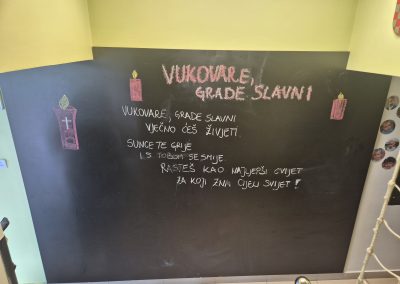 VUKOVARE,
GRADE SLAVNI
VUKOVARE, GRADE SLAVNI
VJEČNO ĆEŠ ŽIVJETI.
SUNCE TE GRIJE
I S TOBOM SE SMIJE.
RASTEŠ KAO NAJLJEPŠI CVIJET
ZA KOJI ZNA CIJELI SVIJET!